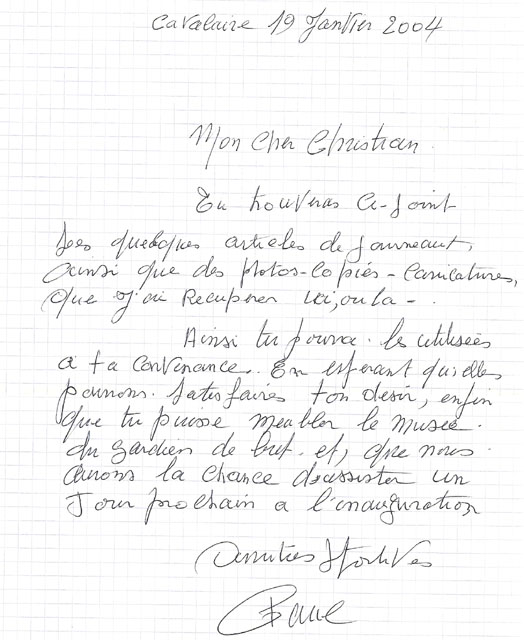 Cavalaire 19 Janvier 2004
Mon Cher Christian
Tu trouveras Ci-Joint
Les quelques articles de Journeaux,
Ainsi que des photos-copiés - Caricatures,
Que j'ai Recuperer ici, ou la -
Ainsi tu pourra. les utilisées
a ta convenance. En esperant qu'elles
pourrons. Satisfaires ton desir, enfin
que tu puisse meubler le musée.
du gardien de but. et, que nous
aurons la chance d'assister un
Jour prochain a l'inauguration
Amitiés Sportives